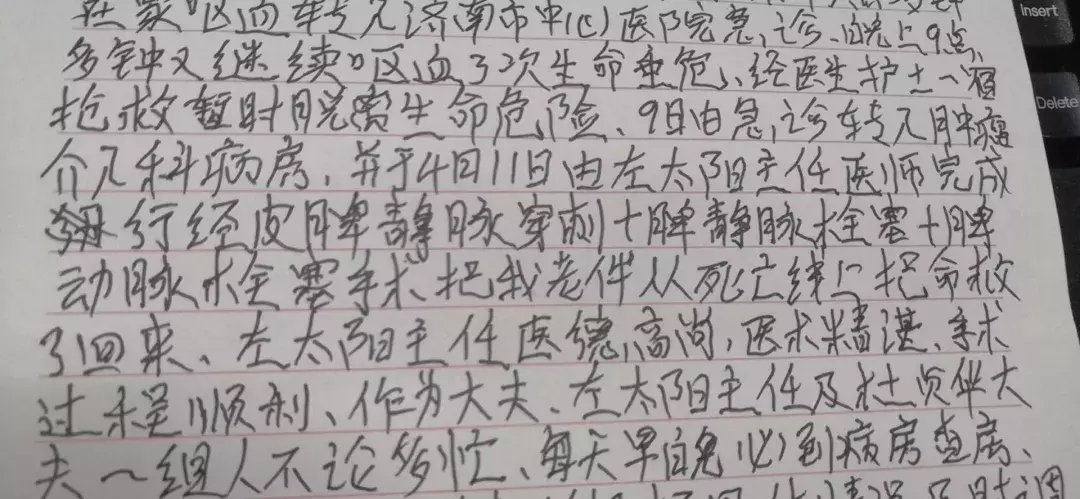 在家呕血转入济南市中心医院急诊、晚上9点
Insert
多钟又继续呕血了2次生命垂危、经医生护士一宿
抢救暂时脱离生命危险、9日由急诊转入肿瘤
Delete
介入科病房，并于4月11日由左太阳主任医师完成
行经皮脾静脉穿刺十脾静脉栓塞十脾
动脉栓塞手术把我老伴从死亡线上把命救
了回来、左太阳主任医德高尚，医术精湛、手术
过程顺利、作为大夫、左太阳主任及杜贞华大
夫一组人不论多忙、每天早晚必到病房查房、